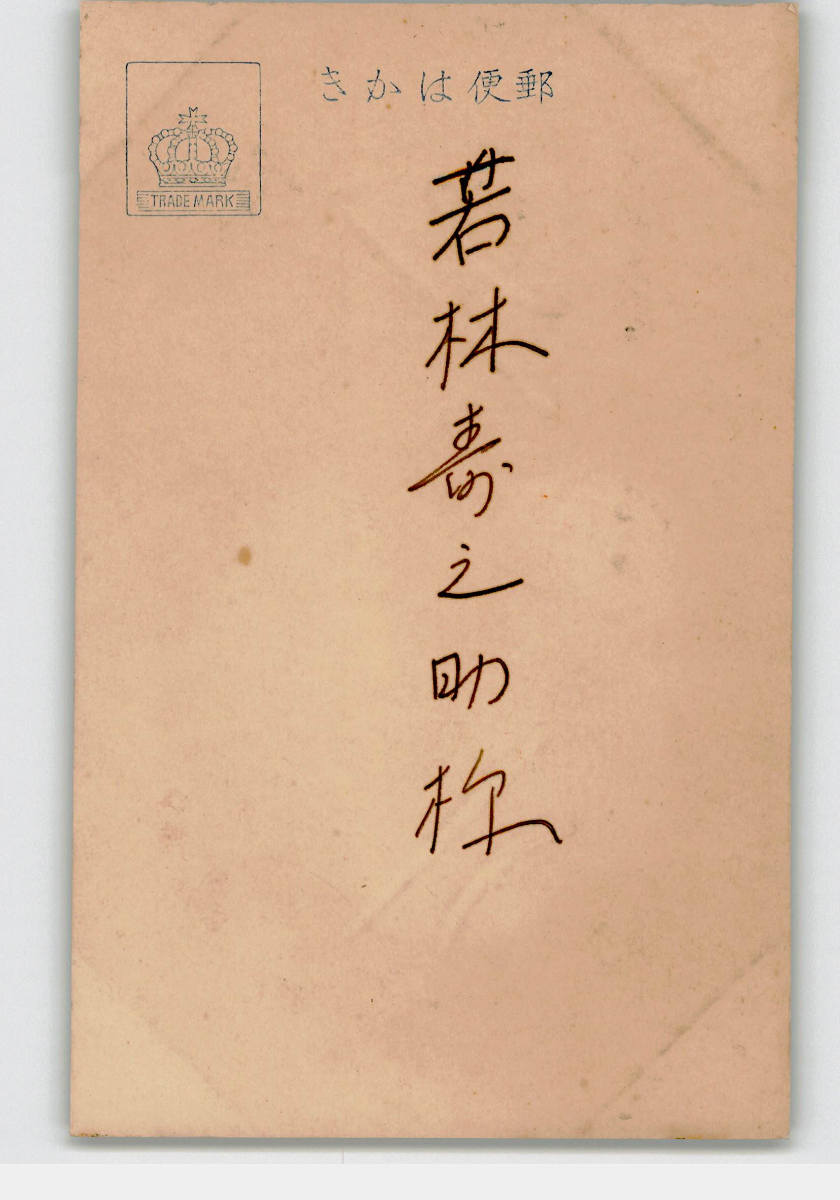 郵便はかき
TRADE MARK
若林寿之助様